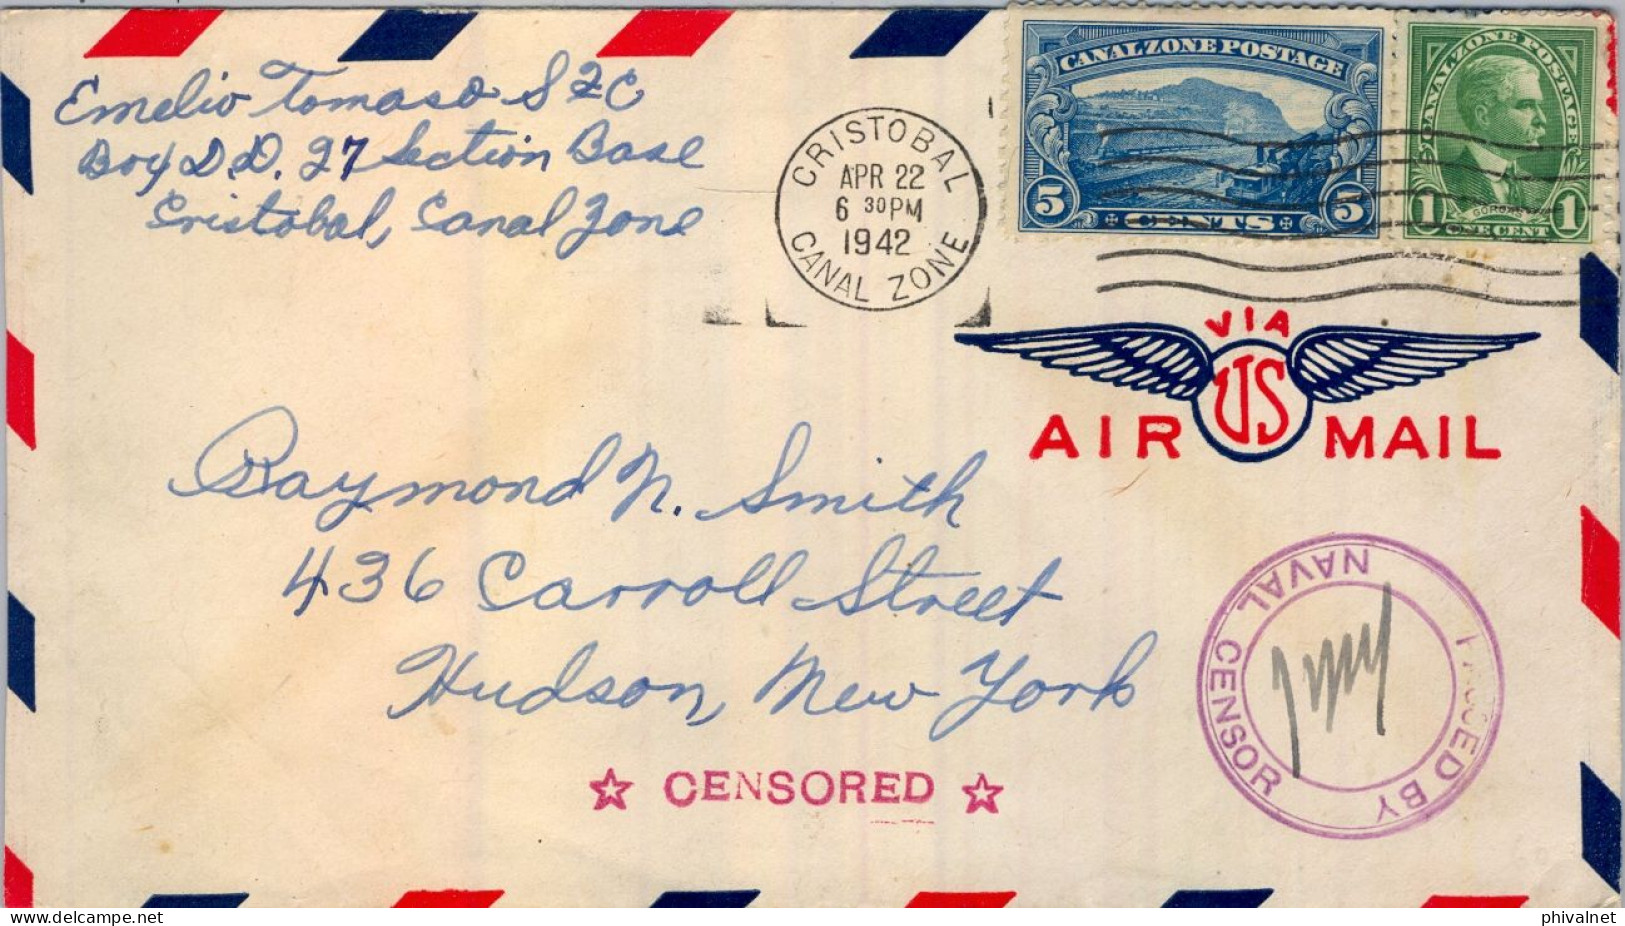 Emelio Tomaso S2C
Box D.D. 27 Section Base
Cristobal, Canal Zone
CRISTOBAL
APR 22
6 30 PM
1942
CANAL ZONE
CANAL ZONE POSTAGE
5 CENTS 5
CANAL ZONE POSTAGE
GORGAS
1 ONE CENT 1
VIA
US
AIR MAIL
Raymond N. Smith
436 Carroll Street
Hudson, New York
☆ CENSORED ☆
PASSED BY
NAVAL CENSOR
phivalnet